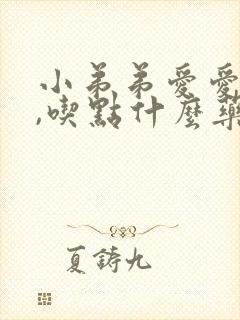 小弟弟愛愛
,喫點什麼藥
夏鑄九